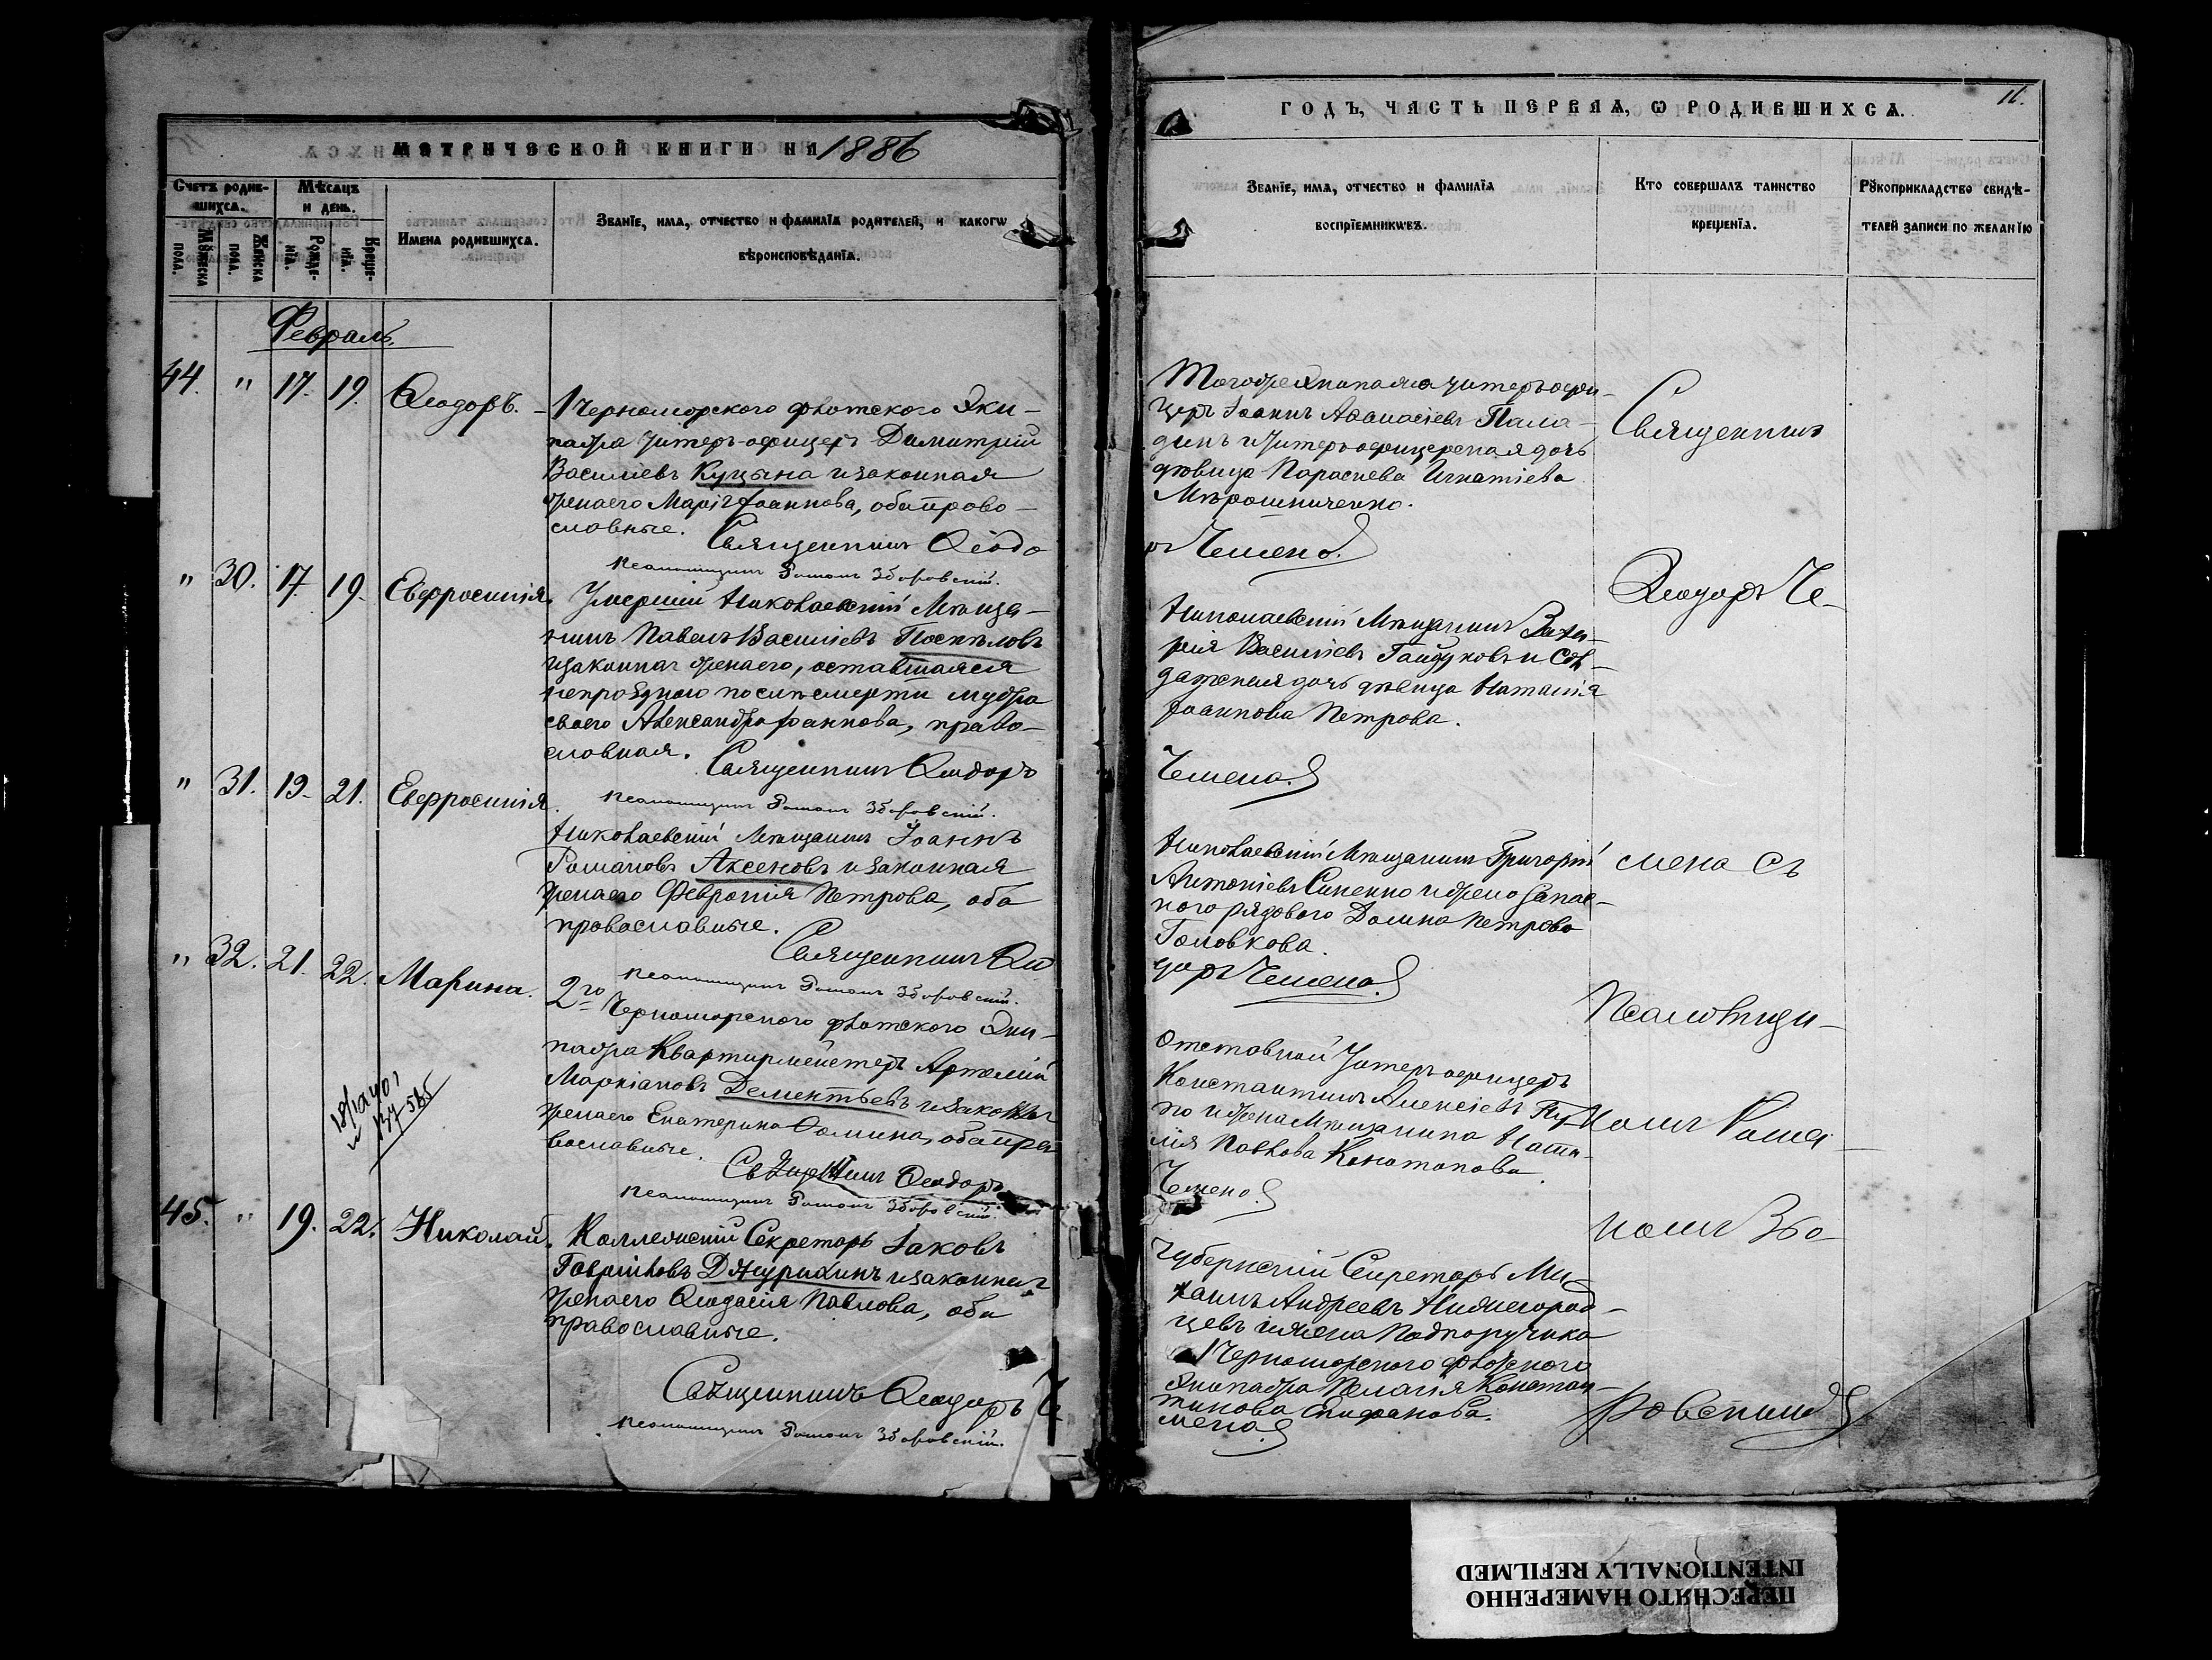 МЕТРИЧЕСКОЙ КНИГИ НА 1886
Счетъ родив-
шихсѧ.
Мѣсѧцъ
и день.
Мꙋжеска
пола.
Женска
пола.
Рожде-
нїѧ.
Креще-
нїѧ.
Имена родившихсѧ.
Званїе, имѧ, отчество и фамилїѧ родителей, и какогѡ
вѣроисповѣданїѧ.
Февраль.
44. " 17. 19. Ѳеодоръ.
1 Черноморского флотского Эки-
пажа Унтеръ-офицеръ Димитрій
Василіевъ Куцына и законная
жена его Марія Іоаннова, оба право-
славные.
Священникъ Ѳеодо
Псаломщикъ Романъ Зборовскій.
" 30. 17. 19. Евфросинія.
Умершій Николаевскій Мѣща-
нинъ Павелъ Василіевъ Поспѣловъ
и законная жена его, оставшаяся
непраздною послѣ смерти мужа
своего Александра Іоаннова, право-
славная.
Священникъ Ѳеодоръ
Псаломщикъ Романъ Зборовскій.
" 31. 19. 21. Евфросинія.
Николаевскій Мѣщанинъ Іоаннъ
Романовъ Аксеновъ и законная
жена его Февронія Петрова, оба
православные.
Священникъ Ѳео
Псаломщикъ Романъ Зборовскій.
" 32. 21. 22. Марина.
2го Черноморского флотского Эки-
пажа Квартирмейстеръ Артемій
Маркіановъ Дементьевъ и законная
жена его Екатерина Ѳомина, оба пра
вославные.
Священникъ Ѳеодоръ
Псаломщикъ Романъ Зборовскій.
45. " 19. 22. Николай.
Коллежскій Секретарь Іаковъ
Гавріиловъ Джурихинъ и законная
жена его Ѳеодосія Павлова, оба
православные.
Священникъ Ѳеодоръ Че
Псаломщикъ Романъ Зборовскій.
ГОДЪ, ЧАСТЬ ПЕРВАѦ, Ѡ РОДИВШИХСѦ.
11.
Званїе, имѧ, отчество и фамилїѧ
воспрїемникѡвъ.
Кто совершалъ таинство
крещенїѧ.
Рꙋкоприкладство свидѣ-
телей записи по желанїю
Того же Экипажа Унтеръ-офи-
церъ Іоаннъ Аѳанасіевъ Пала-
динъ и Унтеръ-офицерская дочь
дѣвица Параскева Игнатіева
Мѣрошниченко.
ръ Чемена.
Николаевскій Мѣщанинъ Заха-
рія Василіевъ Гайдуковъ и Сол-
датская дочь дѣвица Наталія
Іоаннова Петрова.
Чемена.
Николаевскій Мѣщанинъ Григорій
Антоніевъ Синенко и жена запас-
ного рядового Домна Петрова
Головкова.
доръ Чемена.
Отставной Унтеръ-офицеръ
Константинъ Алексіевъ
но и жена Мѣщанина Ната-
лія Павлова Конотопова.
Чемена.
Губернскій Секретарь Ми-
хаилъ Андреевъ Нижегород-
цевъ и жена Подпоручика
1 Черноморского флотского
Экипажа Пелагія Констан-
тинова Епифанова.
мена.
Священникъ
Ѳеодоръ Че-
мена съ
Псаломщи-
комъ Рома-
номъ Збо-
ровскимъ
ПЕРЕСНЯТО НАМЕРЕННО
INTENTIONALLY REFILMED